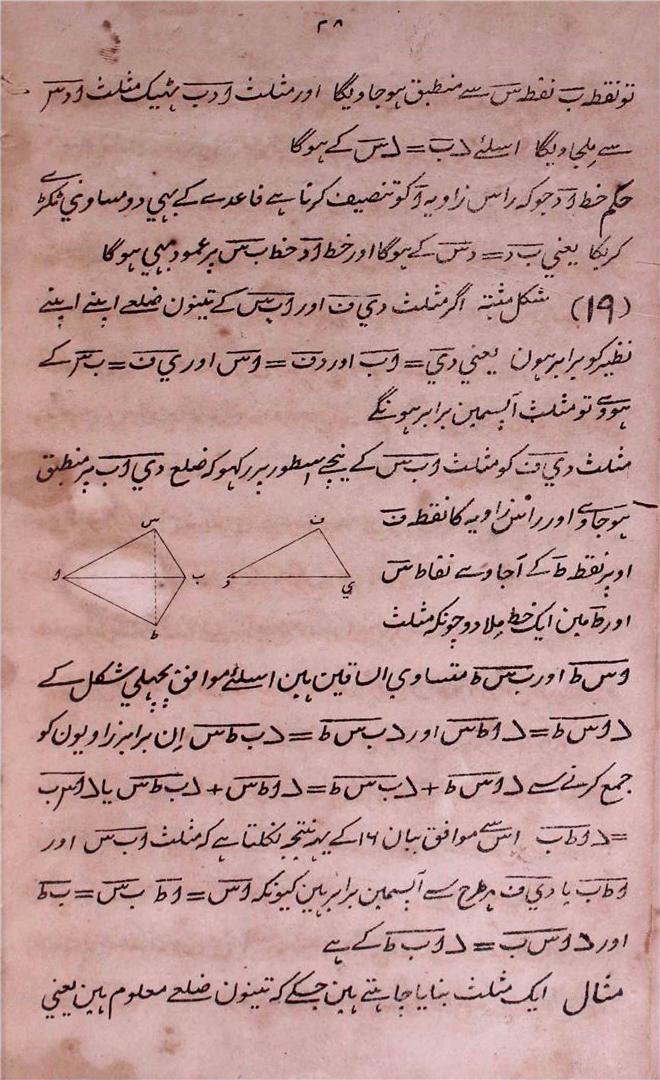 ۲۸
تو نقطہ ب نقطہ س سے منطبق ہو جاویگا اور مثلث ادب ٹہیک مثلث ادس
سے ملجاویگا اسلئے دب = دس کے ہوگا
حکم خط اد جو کہ راس زاویہ ا کو تنصیف کرتا ہے قاعدے کے بہی دو مساوی ٹکڑے
کریگا یعنی ب د = دس کے ہوگا اور خط اد خط ب س پر عمود بہی ہوگا
(۱۹) شکل مثبتہ اگر مثلث دي ف اور اب س کے تینون ضلعے اپنے اپنے
نظیر کو برابر ہون یعنی دي = اب اور دف = اس اور ي ف = ب س کے
ہووے تو مثلث آپسمین برابر ہونگے
مثلث دي ف کو مثلث اب س کے نیچے اسطور پر رکہو کہ ضلع دي اب پر منطبق
ہو جاوے اور راس زاویہ کا نقطہ ف
اوپر نقطہ ط کے آجاوے نقاط س
اور ط مین ایک خط ملا دو چونکہ مثلث
س
ا
ب
ط
ف
د
ي
اس ط اور ب س ط متساوی الساقین ہین اسلئے موافق پچہلی شکل کے
د اس ط = د اط س اور د ب س ط = د ب ط س ان برابر زاویون کو
جمع کرنے سے د اس ط + د ب س ط = د اط س + د ب ط س یا د اس ب
= د اط ب اس سے موافق بیان ۱۶ کے یہہ نتیجہ نکلتا ہے کہ مثلث اب س اور
اط ب یا دي ف ہر طرح سے آپسمین برابر ہین کیونکہ اس = اط ب س = ب ط
اور د اس ب = د اب ط کے ہے
مثال ایک مثلث بنایا چاہتے ہین جسکے کہ تینون ضلعے معلوم ہین یعنی